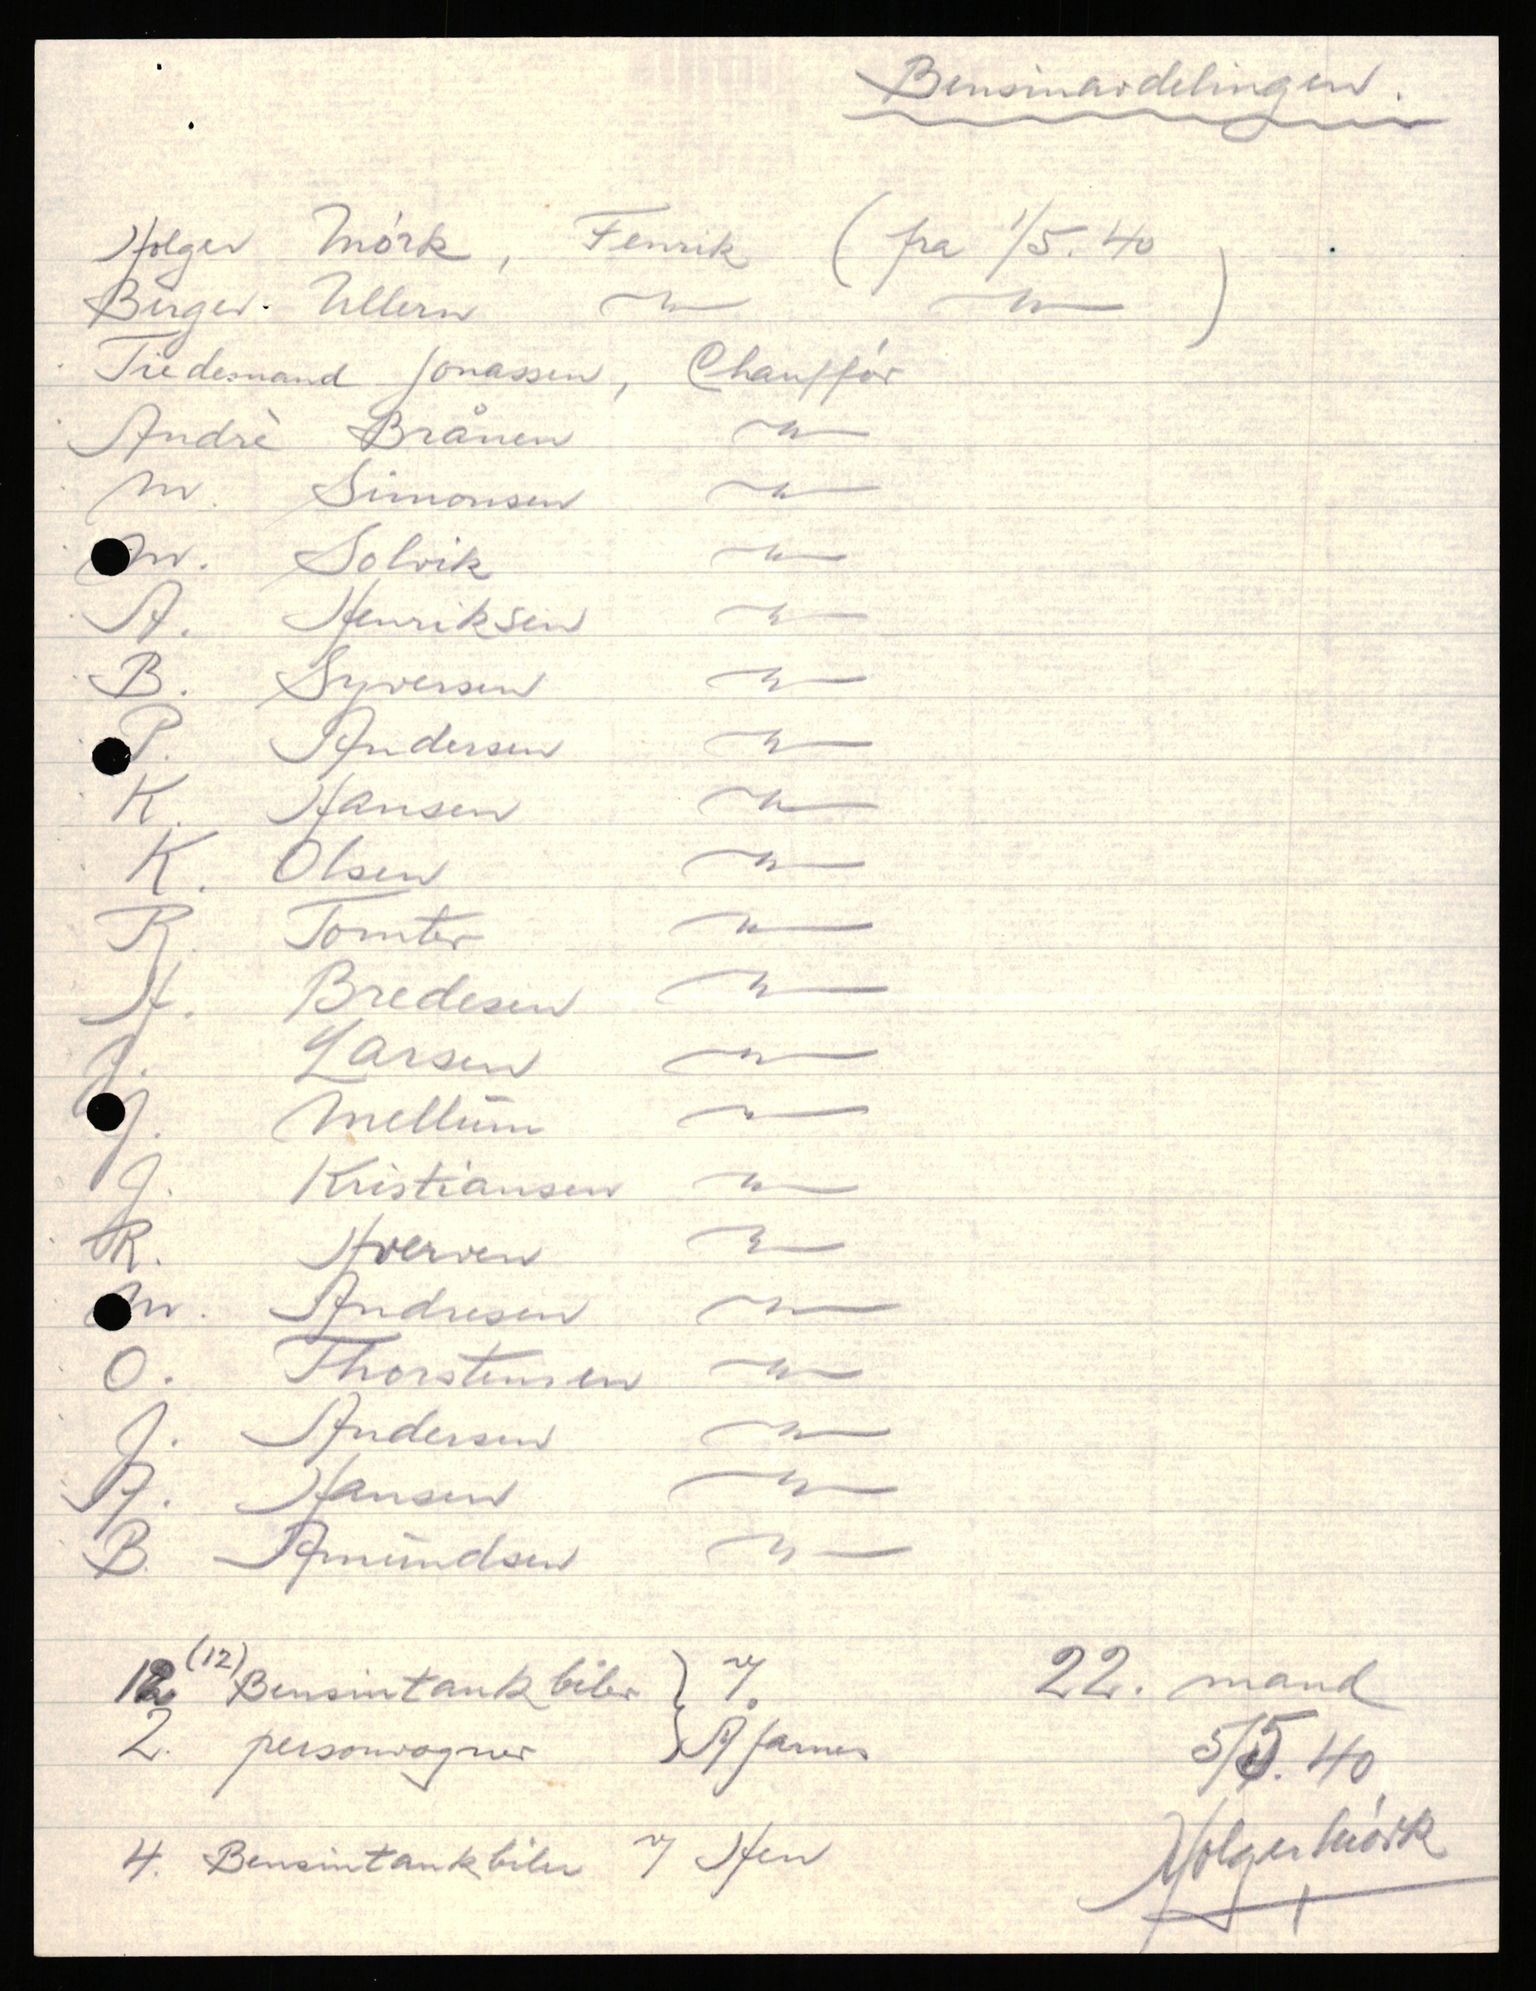 Bensinavdelingen.
Holger Mórk, Fenrik (fra 1/5. 40
Birger Ullern — " — — " — )
Tiedemand Jonassen, Chauffór
Andrè Brånen — " —
M. Simonsen — " —
M. Solvik — " —
A. Henriksen — " —
B. Syversen — " —
P. Andersen — " —
K. Hansen — " —
K. Olsen — " —
R. Tomter — " —
H. Bredesen — " —
J. Larsen — " —
J. Mellum — " —
J. Kristiansen — " —
R. Hverven — " —
M. Andresen — " —
O. Thorstensen — " —
J. Andersen — " —
A. Hansen — " —
B. Amundsen — " —
12 (12) Bensintankbiler } v/.
2. personvogner } Åfarnes
22. mand
5/5. 40
4. Bensintankbiler v/ Hen
Holger Mórk